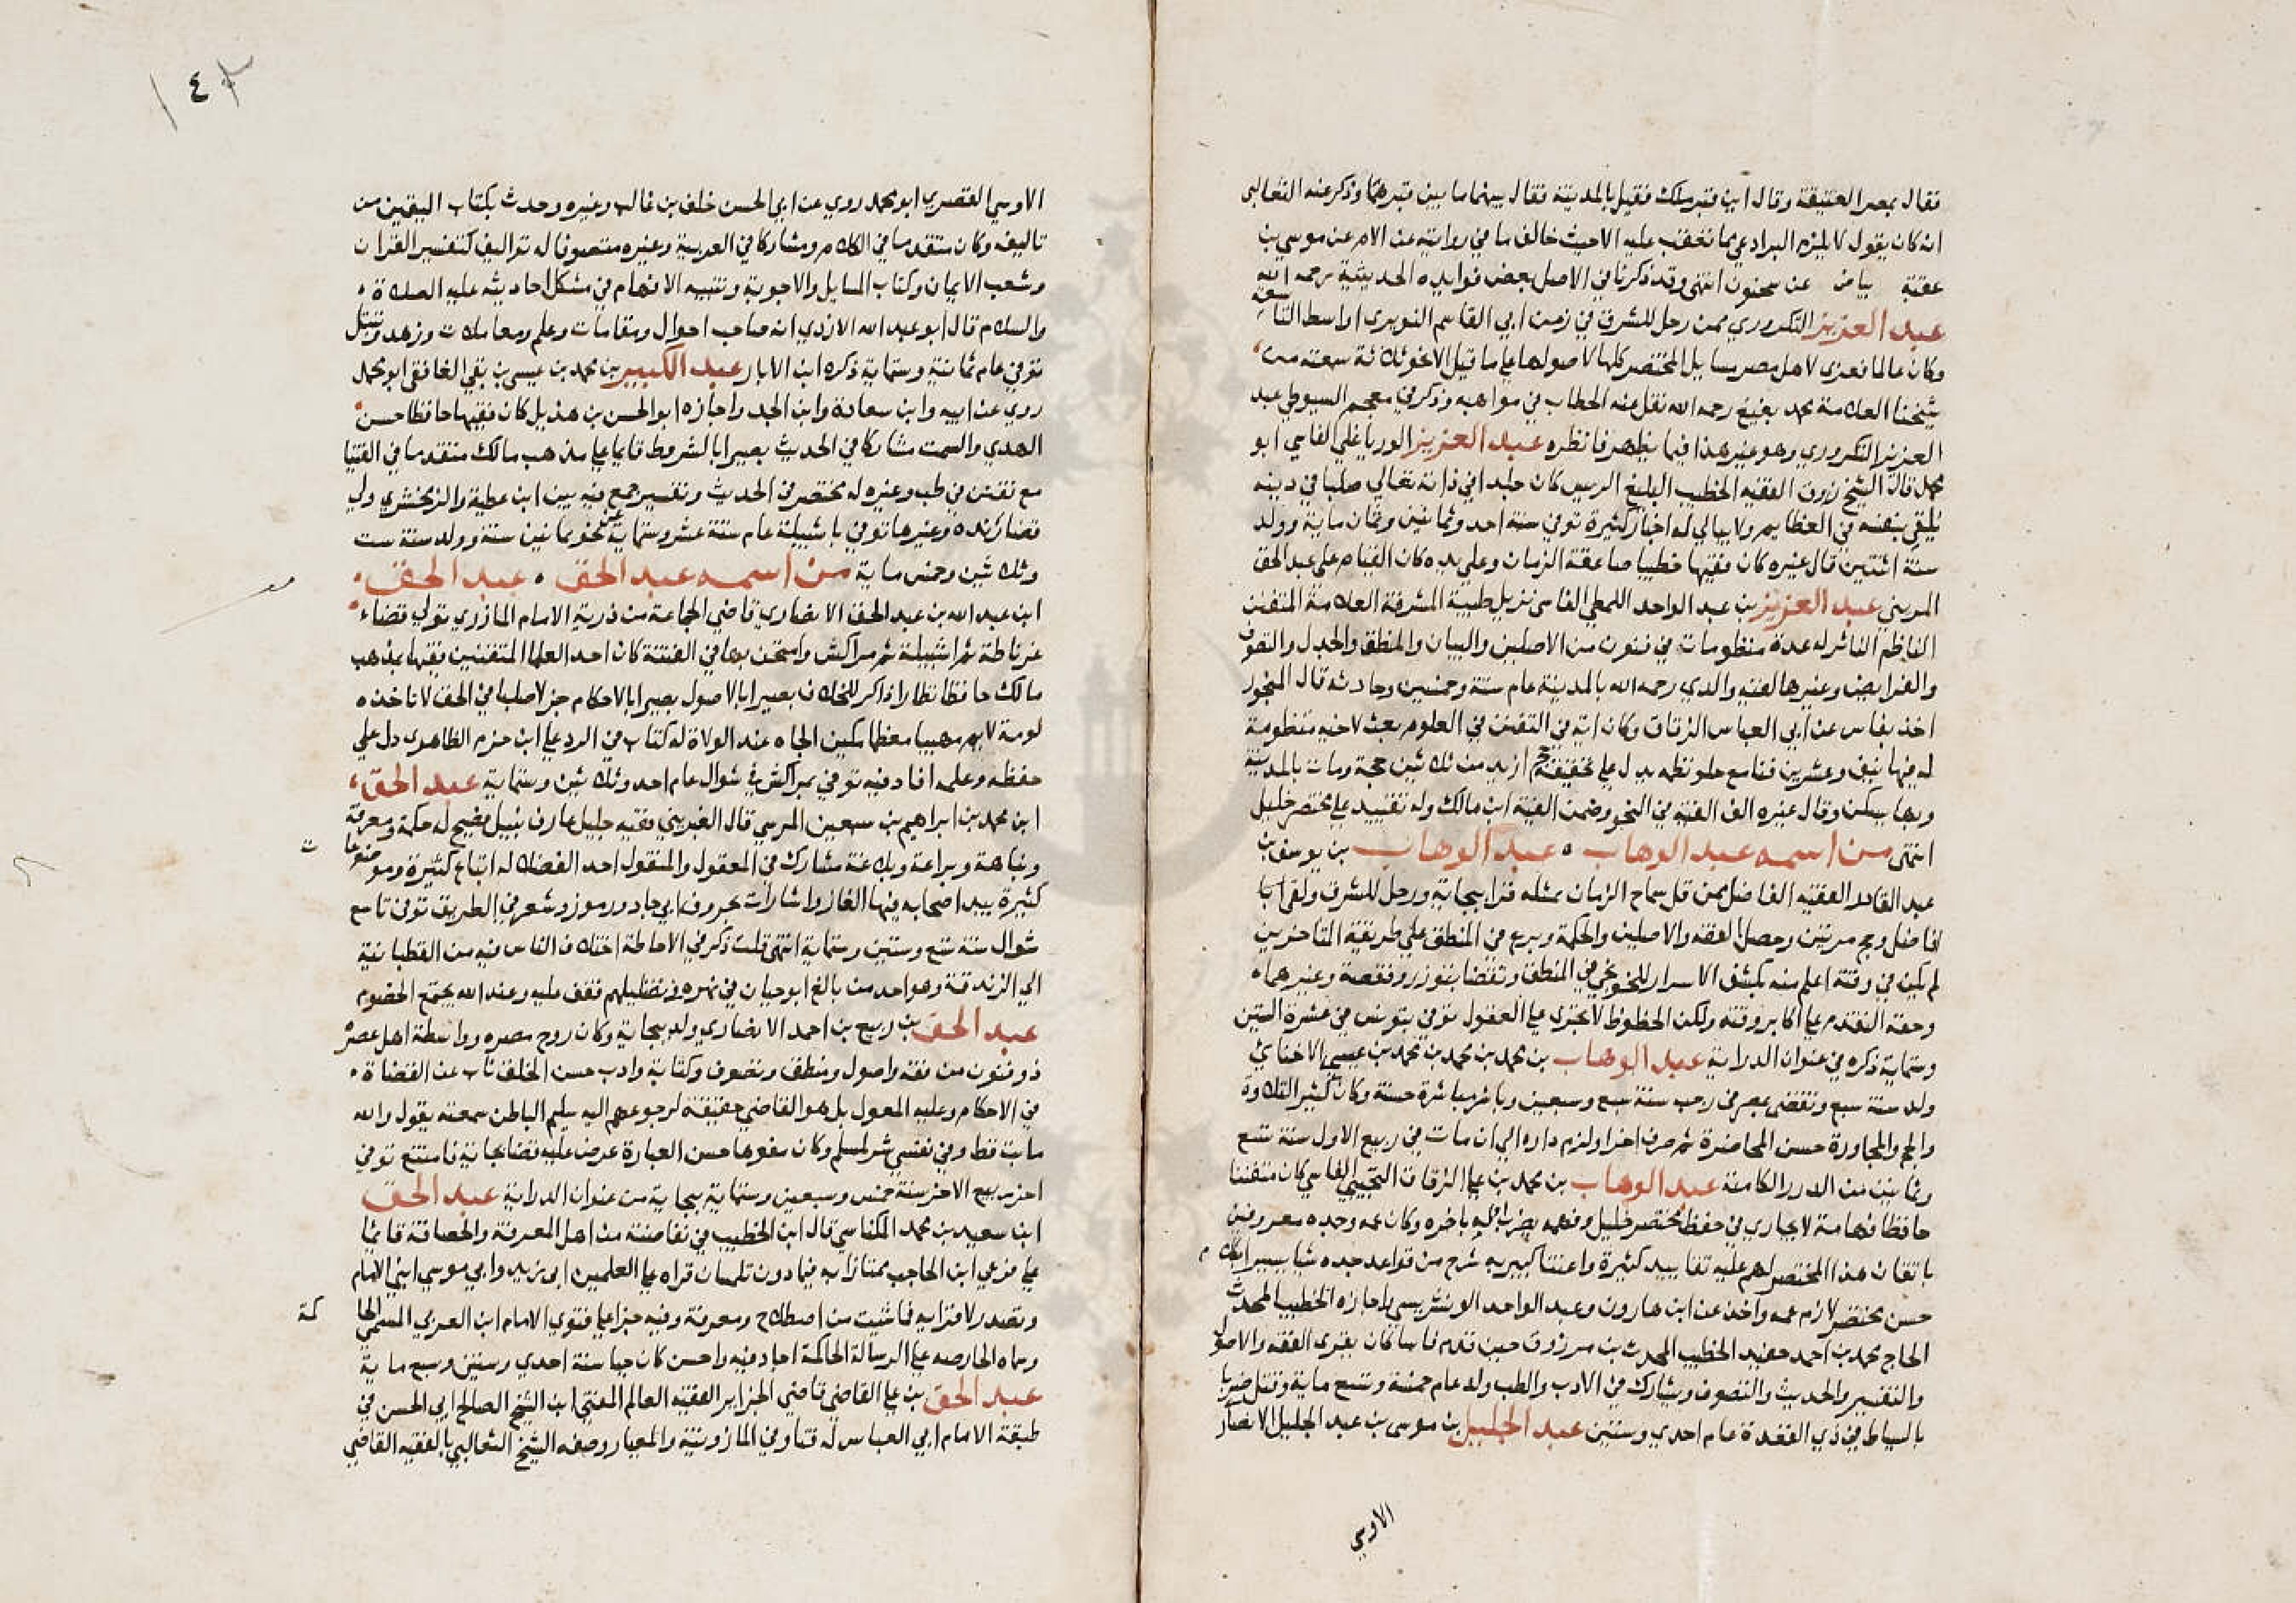 فقال بمصر العتيقة وقال اين قبر مالك فقيل بالمدينة فقال بينهما ما بين قبرهما وذكر عنه الثعالبي
انه كان يقول لا يلزم البرادعي بما تعقب عليه الا حيث خالف ما في روايته عن الام عن موسى بن
عقبة بياض عن سحنون انتهى وقد ذكرنا في الاصل بعض فوايده الحديثية رحمه الله
عبد العزيز التكروري ممن رحل للمشرق في زمن ابي القاسم النويري اواسط التاسعة
وكان عالما فعزى لاهل مصر مسايل المختصر كلها لاصولها على ما قيل الا نحو ثلاثة سمعته من
شيخنا العلامة محمد بغيغ رحمه الله نقل عنه الحطاب في مواهبه وذكر في معجم السيوطي عبد
العزيز التكروري وهو غير هذا فيما يظهر فانظره عبد العزيز الورياغلي الفاسي ابو
محمد قال الشيخ زروق الفقيه الخطيب البليغ الرييس كان جلدا في ذاته تعالى صلبا في دينه
يلقي بنفسه في العظايم ولا يبالي له اخبار كثيرة توفي سنة احد وثمانين وثمان ماية وولد
سنة اثنتين قال غيره كان فقيها خطيبا صاعقة الزمان وعلى يده كان القيام على عبد الحق
المريني عبد العزيز بن عبد الواحد اللمطي الفاسي نزيل طيبة المشرفة العلامة المتفنن
الناظم الناثر له عدة منظومات في فنون من الاصلين والبيان والمنطق والجدل والتصوف
والفرايض وغيرها لقيه والدي رحمه الله بالمدينة عام ستة وخمسين وحادثه قال المنجور
اخذ بفاس عن ابي العباس الزقاق وكان اية في التفنن في العلوم بعث لاخيه منظومة
له فيها نيف وعشرين فنا مع حلو نظمه يدل على تحقيقه حج ازيد من ثلاثين حجة ومات بالمدينة
وبها يسكن وقال غيره الف الفية في النحو وضمن الفية ابن مالك وله تقييد على مختصر خليل
انتهى من اسمه عبد الوهاب ٥ عبد الوهاب بن يوسف بن
عبد القادر الفقيه الفاضل ممن قل سماح الزمان بمثله قرا ببجاية ورحل للمشرق ولقي ابا
افاضل وحج مرتين وحصل الفقه والاصلين والحكمة وبرع في المنطق على طريقة المتاخرين
لم يكن في وقته اعلم منه بكشف الاسرار للخونجي في المنطق وتقضا بتوزر وقفصة وغيرهما ٥
وحقه التقدم على اكابر وقته ولكن الحظوظ لا تجري على العقول توفي بتونس في عشرة الستين
وستماية ذكره في عنوان الدراية عبد الوهاب بن محمد بن محمد بن محمد بن عيسى الاخنائي
ولد سنة سبع وتقضى بمصر في رجب سنة سبع وسبعين وباشر مباشرة حسنة وكان كثير التلاوة
والحج والمجاورة حسن المحاضرة ثم صرف اخرا ولزم داره الى ان مات في ربيع الاول سنة تسع
وثمانين من الدرر الكامنة عبد الوهاب بن محمد بن علي الزقاق التجيبي الفاسي كان متفننا
حافظا فهامة لا يجارى في حفظ مختصر خليل وفهمه يضرب اوله باخره وكان عمه وجده معروفين
باتقان هذا المختصر لهم عليه تقاييد كثيرة واعتنا كبير به شرح من قواعد جده شيا يسيرا بكلام
حسن مختصر لازم عمه واخذ عن ابن هارون وعبد الواحد الونشريسي واجازه الخطيب المحدث
الحاج محمد بن احمد حفيد الخطيب المحدث بن مرزوق حين قدم فاسا كان يقرى الفقه والاصول
والتفسير والحديث والتصوف ويشارك في الادب والطب ولد عام خمسة وتسع ماية وقتل ضربا
بالسياط في ذي القعدة عام احدي وستين عبد الجليل بن موسى بن عبد الجليل الانصاري
الاوسي
١٤٣
الاوسي القصري ابو محمد روي عن ابي الحسن خلف بن غالب وغيره وحدث بكتاب اليقين من
تاليفه وكان متقدما في الكلام ومشاركا في العربية وغيره متصوفا له تواليف كتفسير القران
وشعب الايمان وكتاب المسايل والاجوبة وتنبيه الافهام في مشكل احاديثه عليه الصلاة
والسلام قال ابو عبد الله الازدي انه صاحب احوال ومقامات وعلم ومعاملات وزهد وتبتل
توفي عام ثمانية وستماية ذكره ابن الابار عبد الكبير بن محمد بن عيسى بن بقي الغافقي ابو محمد
روي عن ابيه وابن سعادة وابن الجد واجازه ابو الحسن بن هذيل كان فقيها حافظا حسن
الهدي والسمت مشاركا في الحديث بصيرا بالشروط قايما على مذهب مالك متقدما في الفتيا
مع تفنن في طب وغيره له مختصر في الحديث وتفسير جمع فيه بين ابن عطية والزمخشري ولي
قضا رنده وغيرها توفي باشبيلية عام ستة عشر وستماية عن نحو ثمانين سنة وولد سنة ست
وثلاثين وخمس ماية من اسمه عبد الحق ٥ عبد الحق
ابن عبد الله بن عبد الحق الانصاري قاضي الجماعة من ذرية الامام المازري تولي قضاء
غرناطة ثم اشبيلية ثم مراكش وامتحن بها في الفتنة كان احد العلما المتفننين فقيها بمذهب
مالك حافظا نظارا ذاكر للخلاف بصيرا بالاصول بصيرا بالاحكام جزلا صلبا في الحق لا تاخذه
لومة لايم مهيبا معظما مكين الجاه عند الولاة له كتاب في الرد على ابن حزم الظاهري دل على
حفظه وعلمه افاد فيه توفي بمراكش في شوال عام احد وثلاثين وستماية عبد الحق
ابن محمد بن ابراهيم بن سبعين المرسي قال الغبريني فقيه جليل عارف نبيل فصيح له حكمة ومعرفة
ونباهة وبراعة وبلاغة مشارك في المعقول والمنقول احد الفضلا له اتباع كثيرة وموضوعات
كثيرة بيد اصحابه فيها الغاز واشارات بحروف ابي جاد ورموز وشعر في الطريق توفي تاسع
شوال سنة تسع وستين وستماية انتهى قلت ذكر في الاحاطة اختلاف الناس فيه من القطبانية
الي الزندقة وهو احد من بالغ ابو حيان في نهره في تضليلهم فقف عليه وعند الله يجتمع الخصوم
عبد الحق بن ربيع بن احمد الانصاري ولد ببجاية وكان روح مصره وواسطة اهل عصره
ذو فنون من فقه واصول ومنطق وتصوف وكتابة وادب حسن الخلق ناب عن القضاة
في الاحكام وعليه المعول بل هو القاضي حقيقة لرجوعهم اليه سليم الباطن سمعته يقول والله
ما بت قط وفي نفسي شر لمسلم وكان مفوها حسن العبارة عرض عليه قضا بجاية فامتنع توفي
اخر ربيع الاخر سنة خمس وسبعين وستماية ببجاية من عنوان الدراية عبد الحق
ابن سعيد بن محمد المكناسي قال ابن الخطيب في نفاضته من اهل المعرفة والحصافة قايما
على فرعي ابن الحاجب ممتازا به فيما دون تلمسان قراه على العلمين ابي زيد وابي موسى ابني الامام
وتصدر لاقرايه فما شيت من اصطلاح ومعرفة وفيه جزا على فتوي الامام ابن العربي المسمى الحاكمة
وسماه الحارصه على الرسالة الحاكمة اجاد فيه واحسن كان حيا سنة احدي وستين وسبع ماية
عبد الحق بن علي القاضي قاضي الجزاير الفقيه العالم المفتي ابن الشيخ الصالح ابي الحسن في
طبقة الامام ابي العباس له فتاو في المازونية والمعيار وصفه الشيخ الثعالبي بالفقيه القاضي